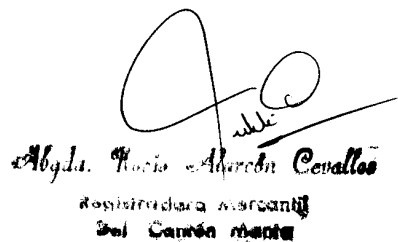 Abgda. Rocío Alarcón Cevallos
Registradora Mercantil
Del Cantón Manta